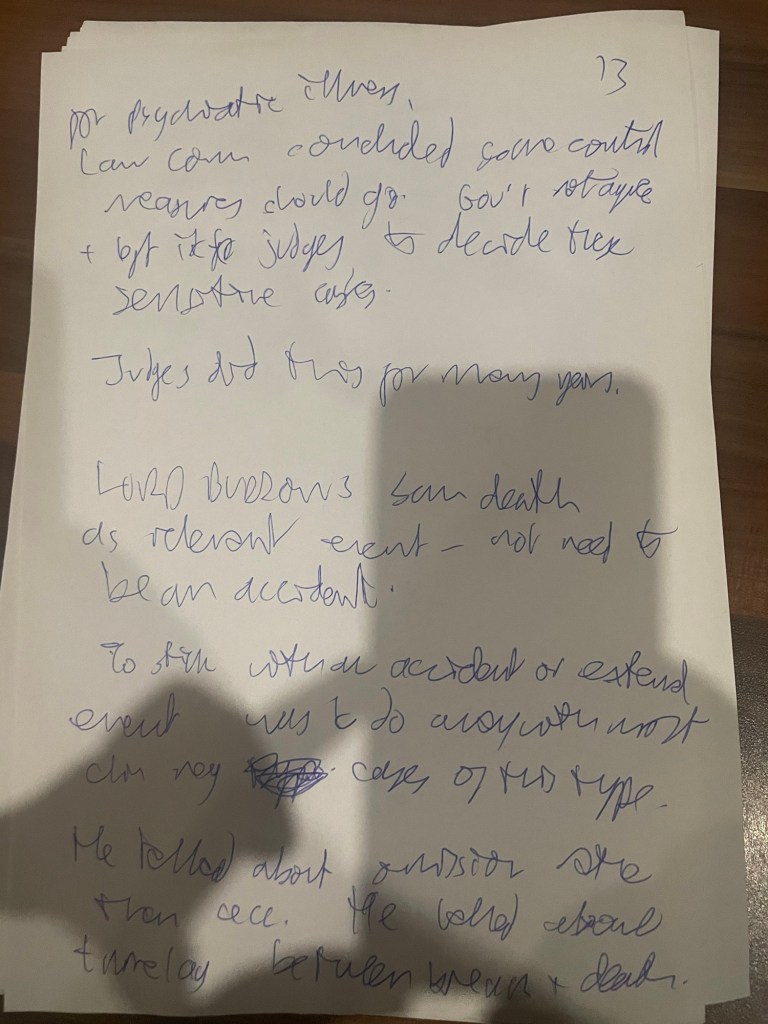 13
for psychiatric illness.
Law Com concluded some control
measures should go. Gov't not agree
+ left it for judges to decide these
sensitive cases.
Judges did this for many years.
LORD BURROWS saw death
as relevant event - not need to
be an accident.
To stick with an accident or extend
event was to do away with most
clin neg cases of this type.
He talked about omission
than acc. He talked about
timelag between breach + death.